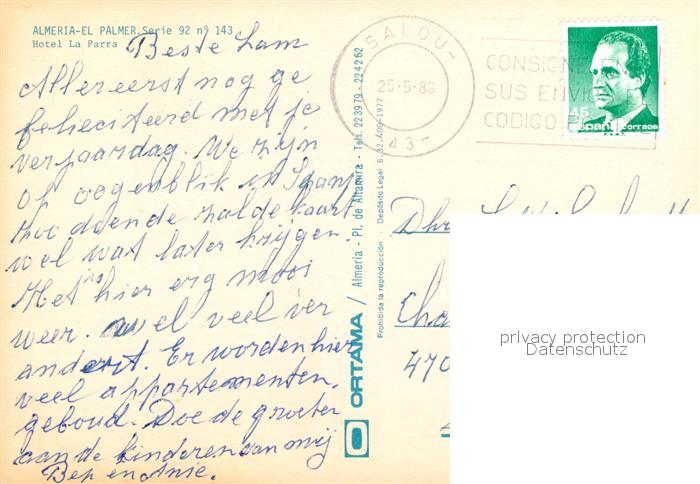 ALMERIA-EL PALMER.Serie 92 nº 143
Hotel La Parra
Beste Lam
Allereerst nog ge
feliciteerd met je
verjaardag. We zijn
op oogenblik in Spanje
hoo doende zalde kaart
wel wat later krijgen.
Het is hier erg mooi
weer. wel veel ver
anderd. Er worden hier
veel appartementen,
geboud. Doe de groeten
aan de kinderen van mij
Bep en Anie.
ORTAMA / Almeria - Pl. de Altamira - Tels. 223979 - 224262
Prohibida la reproducción . Depósito Legal B. 32.400-1977
SALOU-
25-5-88
43-
CONSIGNE EN
SUS ENVIOS
CODIGO
45
España correos
F.N.M.T.
Dhr
Cha
470
privacy protection
Datenschutz